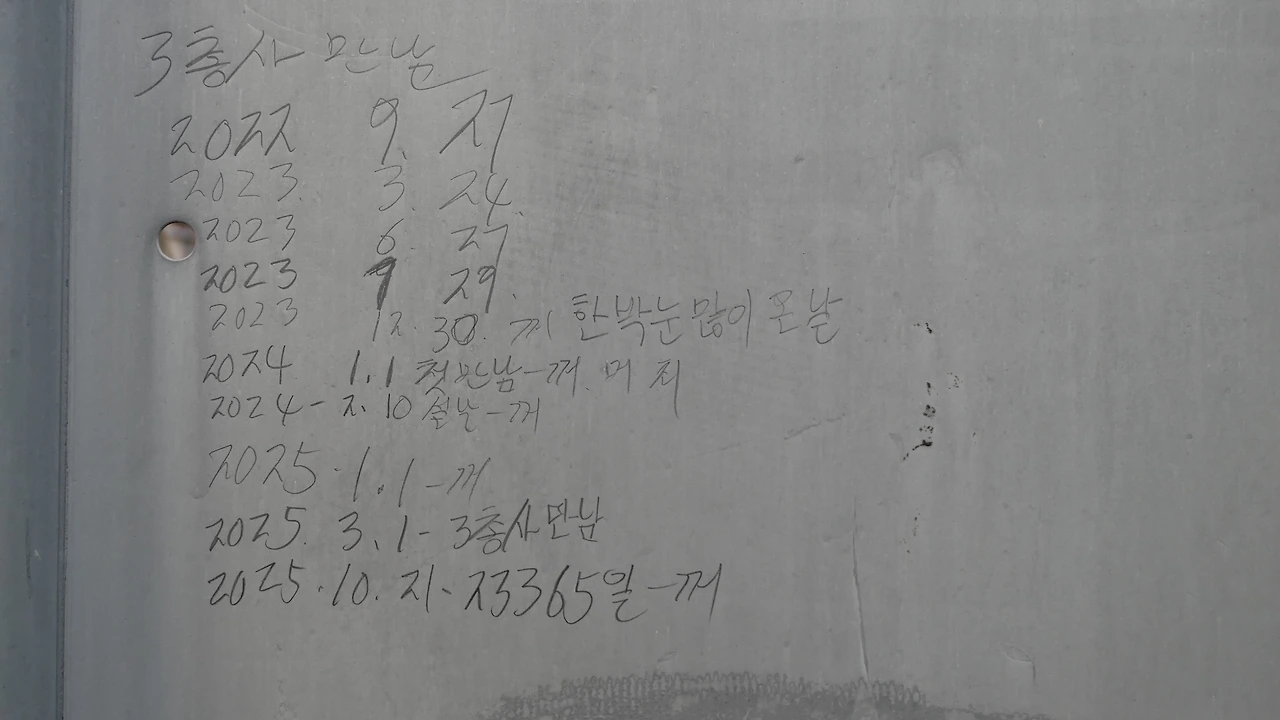 3총사 만남
2022 9. 27
2023. 3. 24.
2023 6. 27
2023 9 29.
2023 12. 30. 끼 한박눈많이 온날
2024 1.1 첫만남-꺼. 머 죄
2024-2.10 설날-꺼
2025.1.1-꺼
2025. 3.1-3총사만남
2025.10.21.23365일-꺼